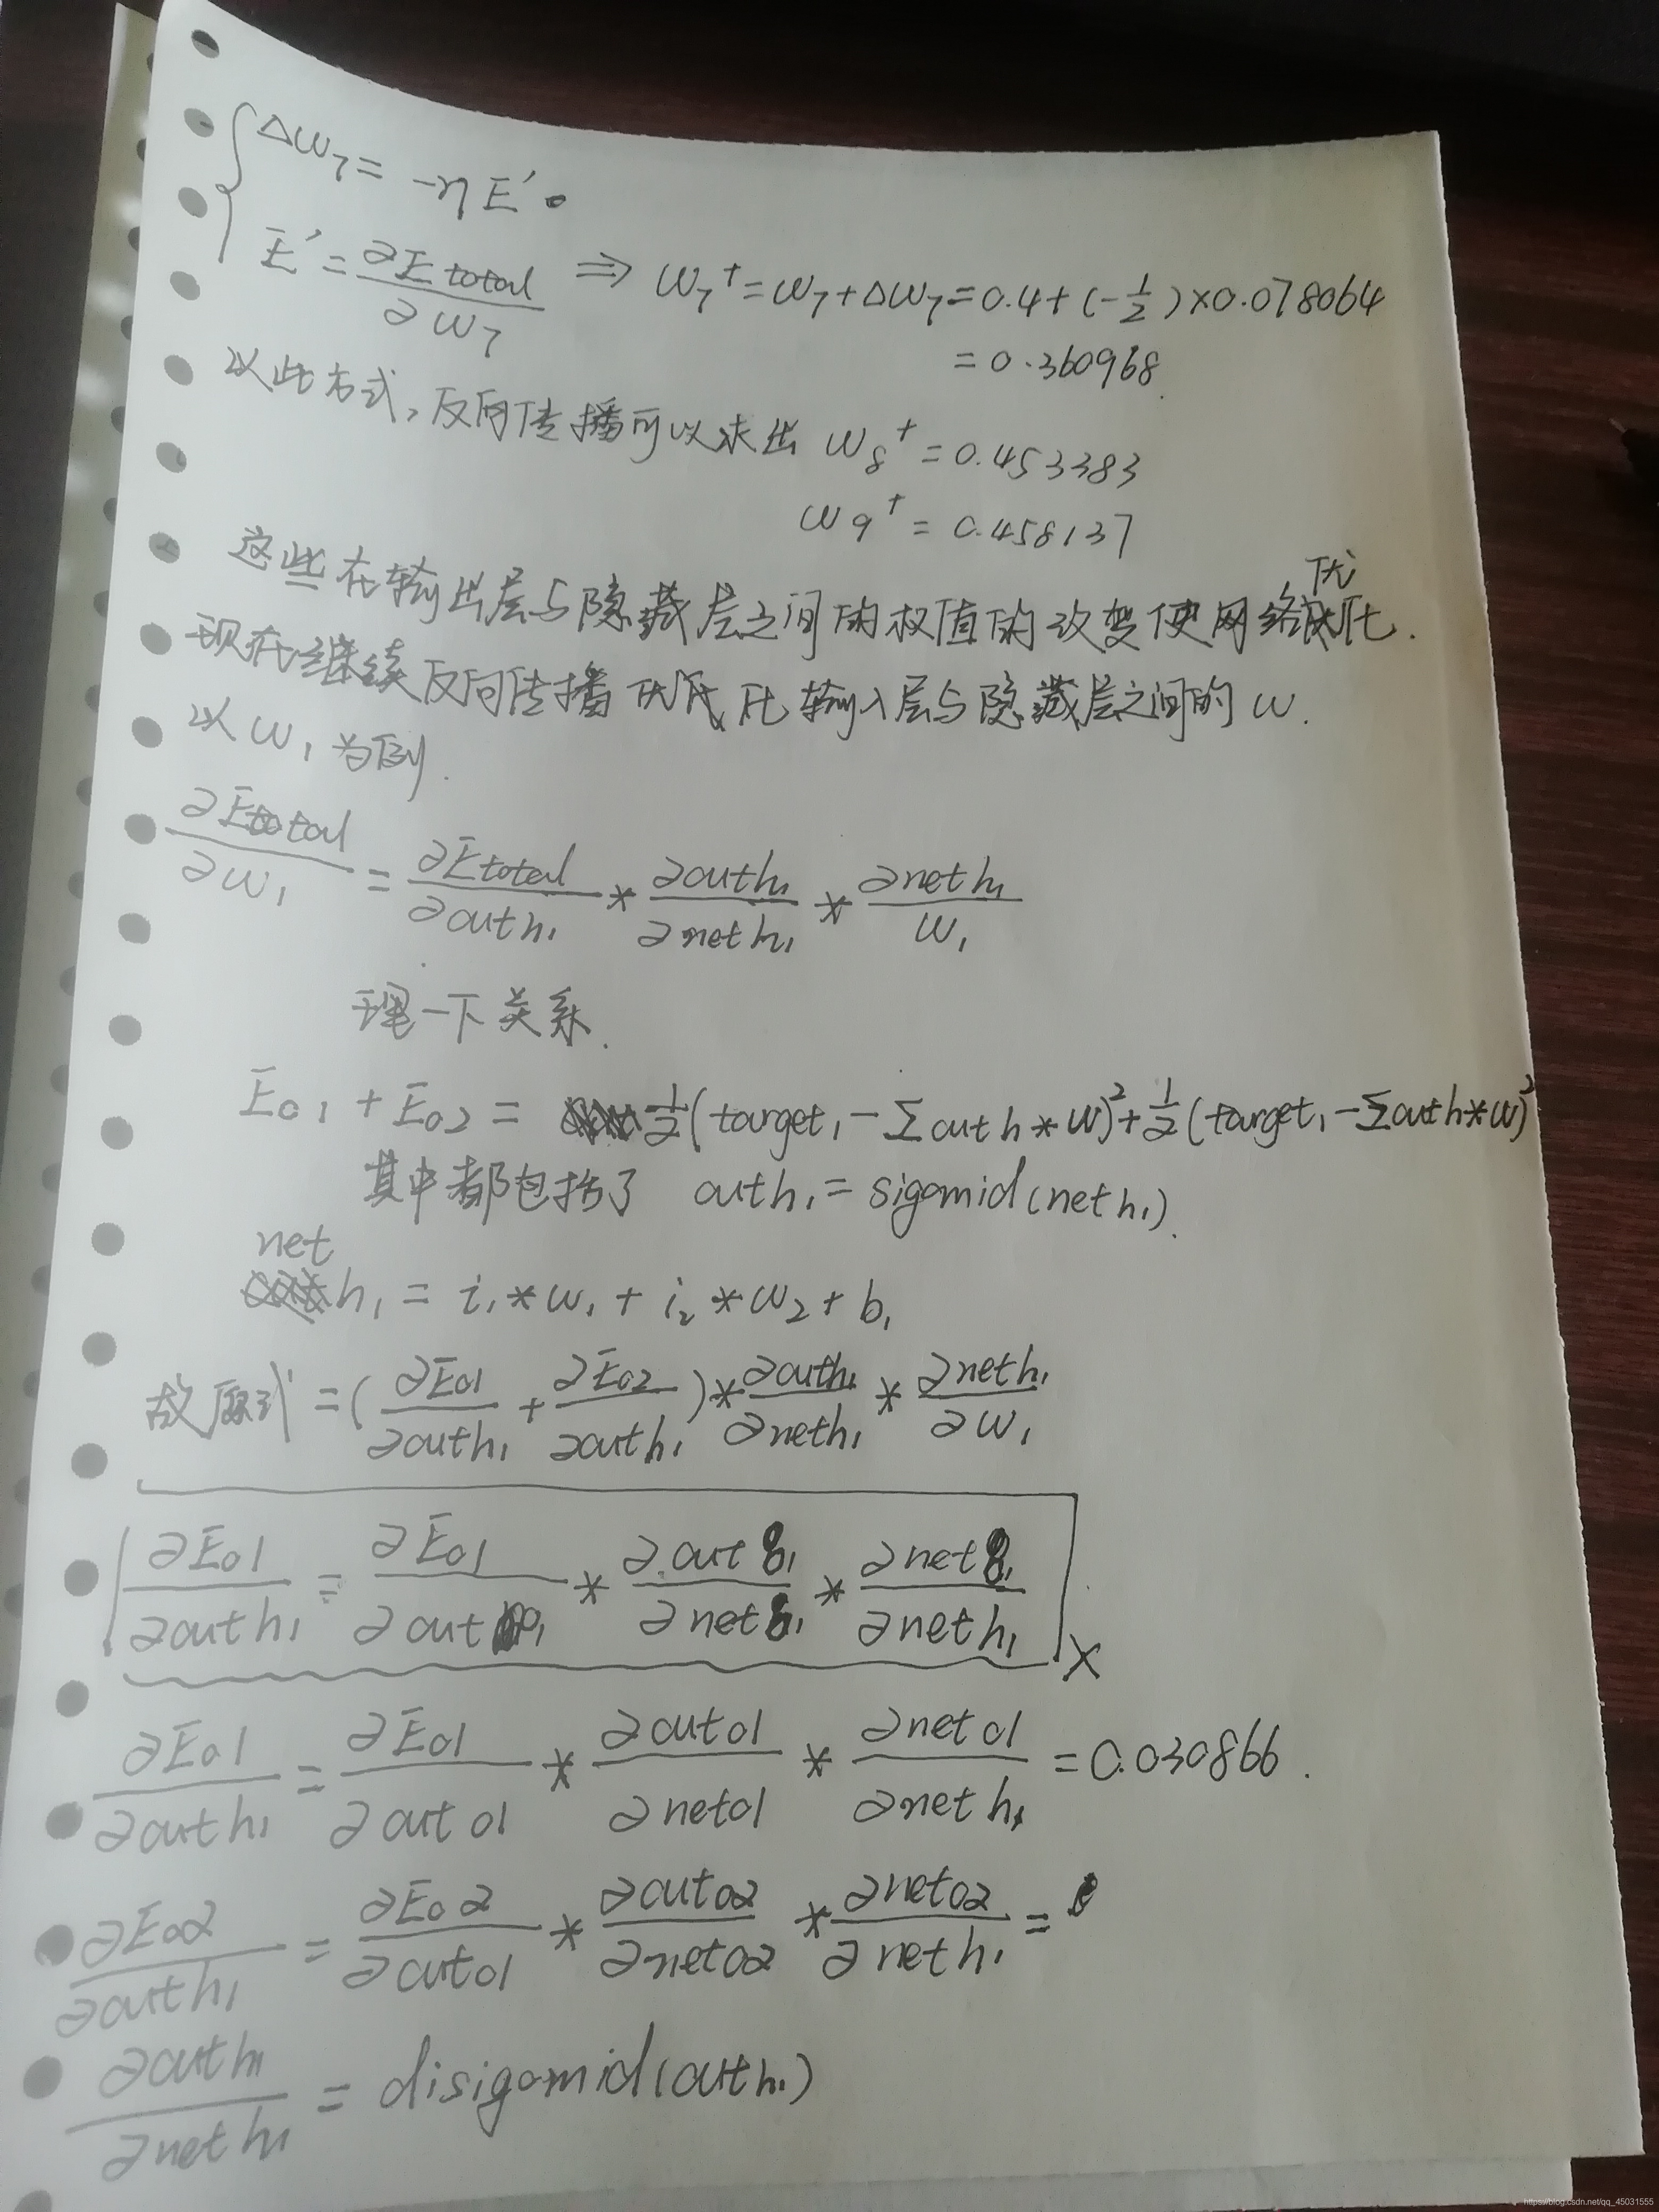 Δw₇ = -ηE'。
E' = ∂Etotal/∂w₇ ⇒ w₇⁺ = w₇ + Δw₇ = 0.4 + (-1/2) × 0.078064
= 0.360968.
以此方式，反向传播可以求出 w₈⁺ = 0.453383
w₉⁺ = 0.458137
这些在输出层与隐藏层之间的权值的改变使网络优化.
现在继续反向传播优化输入层与隐藏层之间的 w.
以 w₁ 为例.
∂Etotal/∂w₁ = ∂Etotal/∂outh₁ * ∂outh₁/∂neth₁ * ∂neth₁/w₁
理一下关系.
Eo1 + Eo2 = 1/2(target₁ - Σouth*w)² + 1/2(target₁ - Σouth*w)²
其中都包括了 outh₁ = sigomid(neth₁).
net h₁ = i₁*w₁ + i₂*w₂ + b₁
故原式 = (∂Eo1/∂outh₁ + ∂Eo2/∂outh₁) * ∂outh₁/∂neth₁ * ∂neth₁/∂w₁
∂Eo1/∂outh₁ = ∂Eo1/∂outo₁ * ∂outo₁/∂neto₁ * ∂neto₁/∂neth₁ ×
∂Eo1/∂outh₁ = ∂Eo1/∂outo1 * ∂outo1/∂neto1 * ∂neto1/∂neth₁ = 0.030866.
∂Eo2/∂outh₁ = ∂Eo2/∂outo1 * ∂outo2/∂neto2 * ∂neto2/∂neth₁ =
∂outh₁/∂neth₁ = disigomid(outh₁)
https://blog.csdn.net/qq_45031555